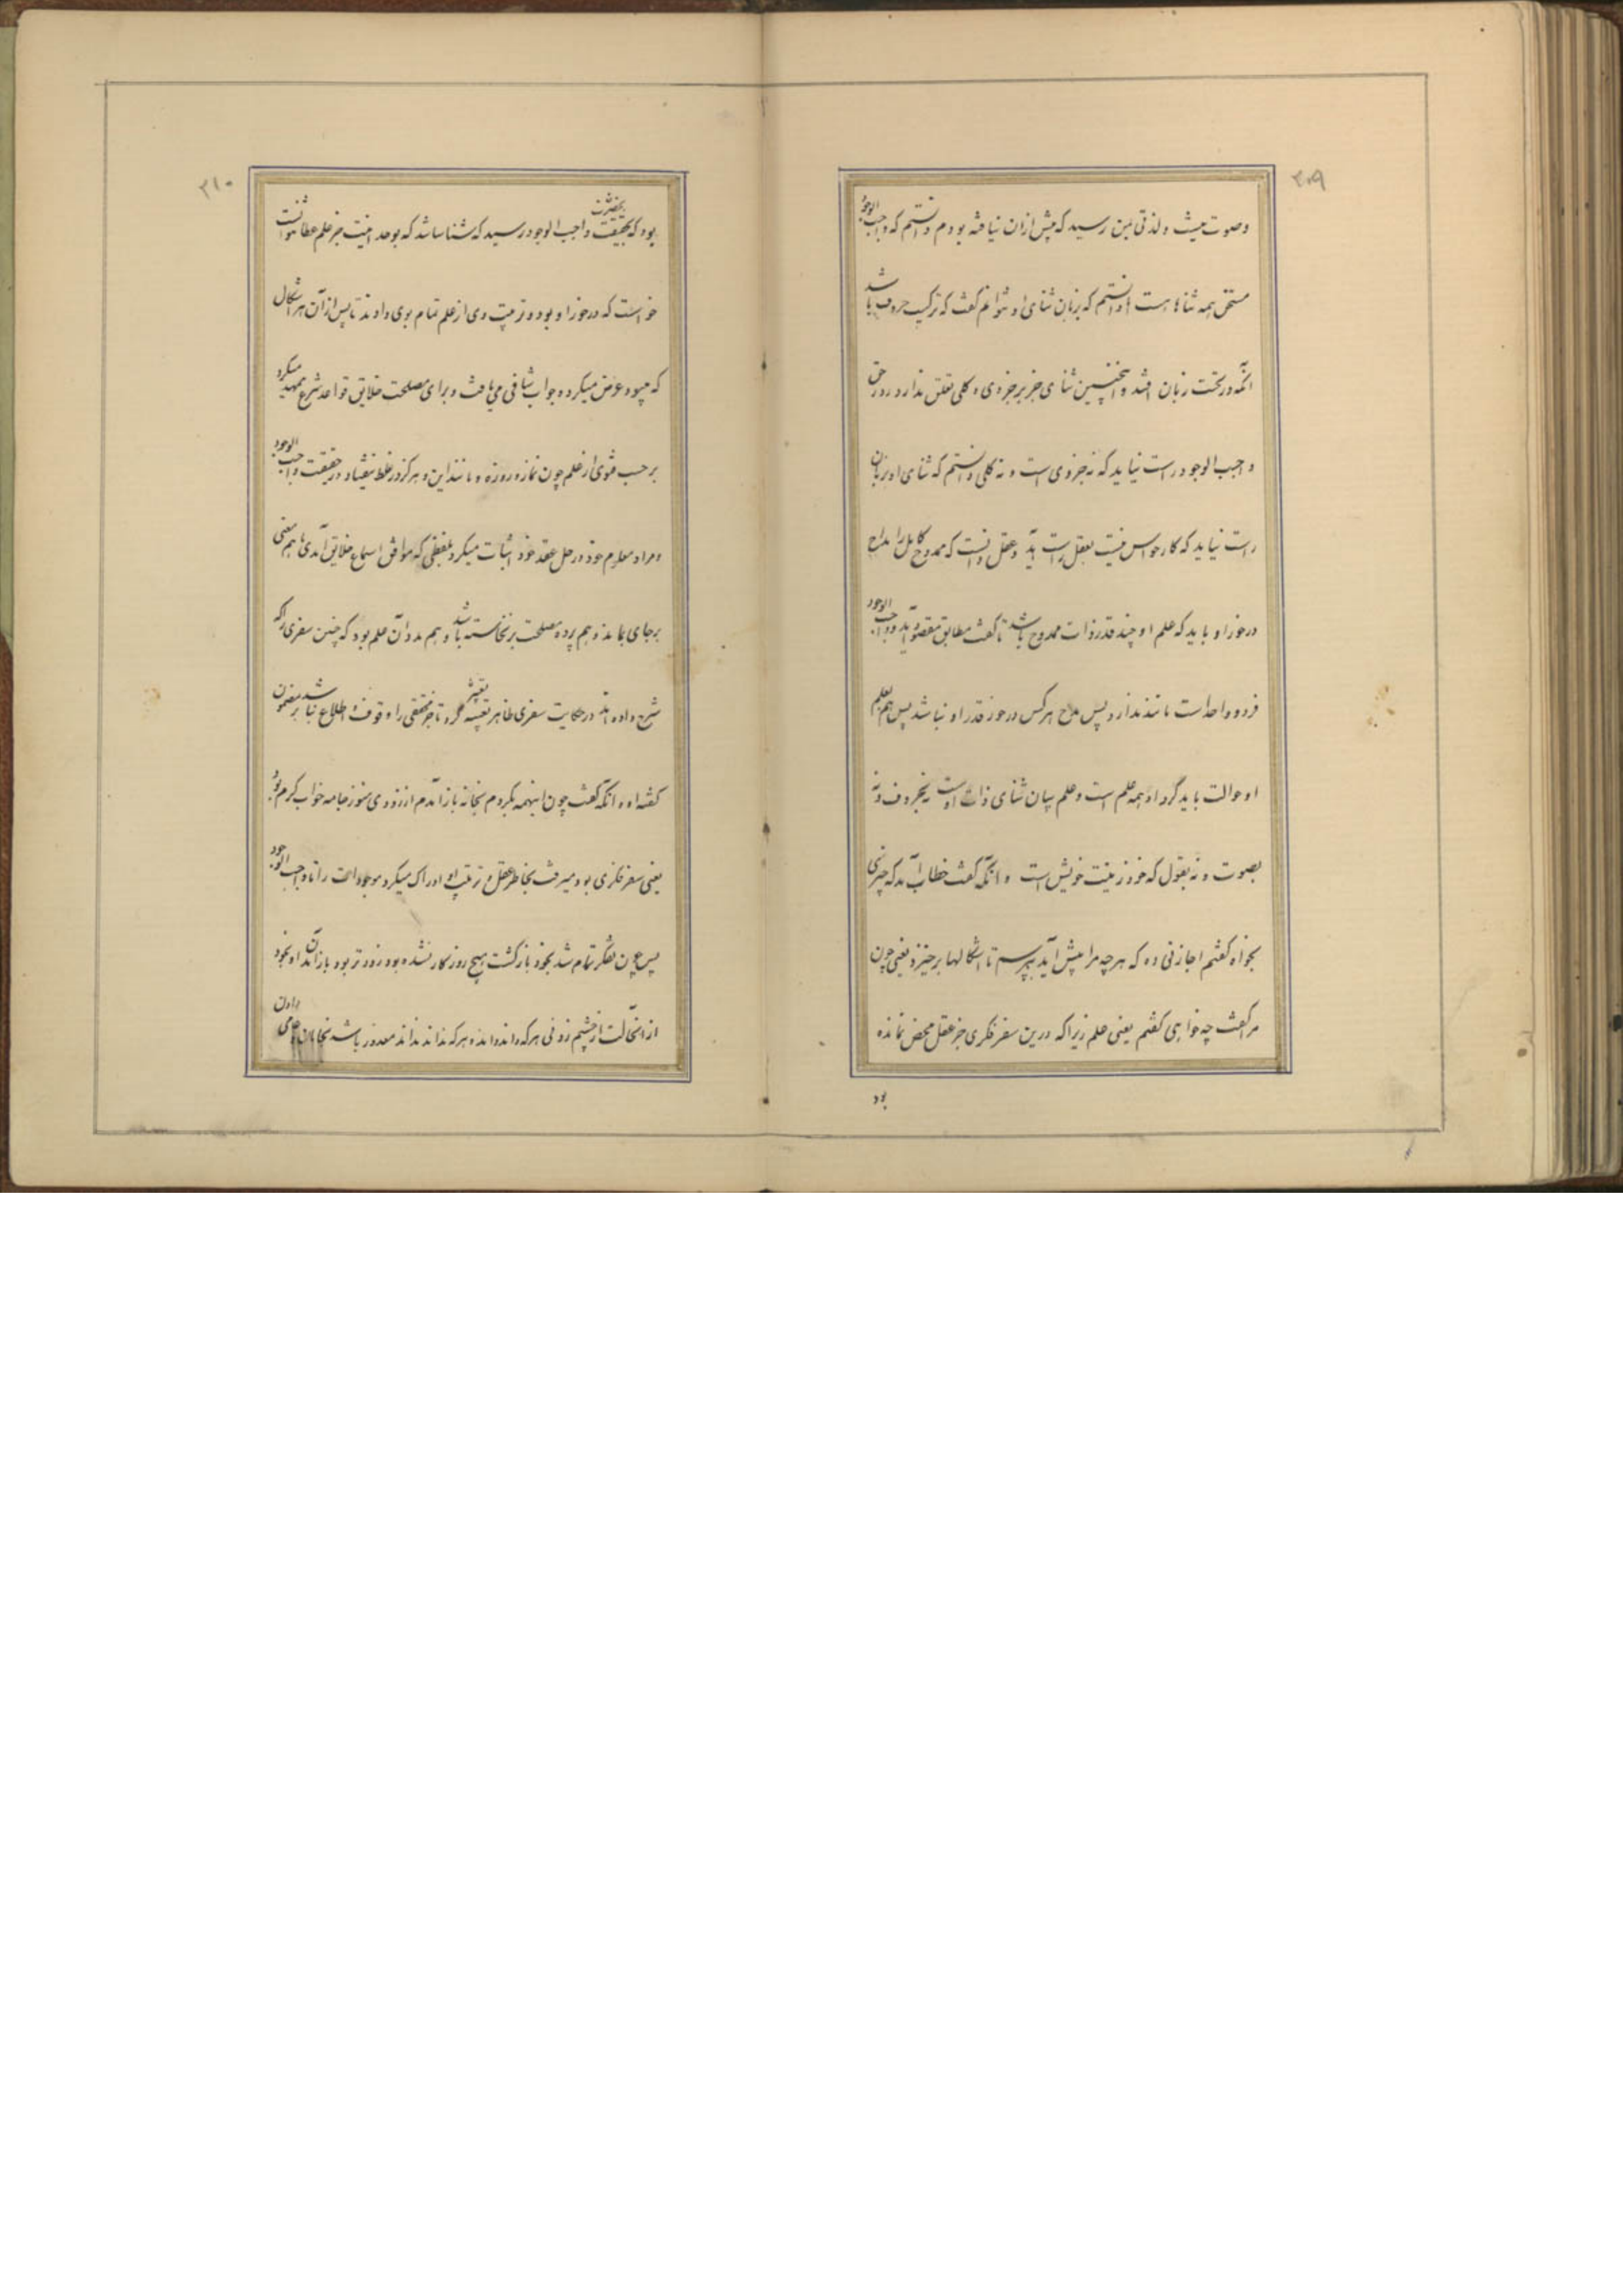 ۲۰۹
وصوت میث ولذتی بمن رسید که پیش ازان نیافته بودم دانستم که واجب الوجود
مستحق همه ثناها هست اما دانستم که بزبان ثنای او نتوانم گفت که ترکیب حروف باشد
آنکه در تحت زبان افتد و اینچنین ثنای جز بر جزوی و کلی تعلق ندارد و در حق
واجب الوجود راست نیاید که نه جزوی است و نه کلی دانستم که ثنای او بزبان
راست نیاید که کار حواس نیست بعقل راست آید و عقل دانست که ممدوح کامل را مداح
درخور او باید که علم او چند قدر ذات ممدوح باشد تا گفت مطابق مقصود آید و واجب الوجود
فرد و واحد است مانند ندارد پس مدح هرکس درخور قدر او نباشد پس هم بعلم
او حوالت باید کرد او همه علم است و علم بیان ثنای ذات اوست نه بحروف و نه
بصوت و نه بقول که خود زینت خویش است و آنکه گفت خطاب آمد که چیزی
بخواه گفتم اجازتی ده که هرچه مرا پیش آید بپرسم تا اشکالها برخیزد یعنی چون
مرا گفت چه خواهی گفتم یعنی علم زیرا که درین سفر فکری جز عقل محض نمانده
بود
۲۱۰
بود که بحقیقت بحضرت واجب الوجود رسید که شناسا شد که بوحدانیت جز علم عطا نتوانست
خواست که درخور او بود و ترتیب وی از علم تمام بوی دادند تا پس از آن هر اشکال
که میبود عرض میکرد و جواب شافی می یافت و برای مصلحت خلایق قواعد شرع تمهید میکرد
برحسب فتوی از علم چون نماز و روزه و مانند این و هرگز در غلط نیفتاد در حقیقت واجب الوجود
و مراد معلوم خود در حل عقد خود اثبات میکرد بلفظی که موافق اسماع خلایق آمدی تا هم معنی
برجای بماند و هم پرده مصلحت برنخاسته باشد و هم مدد آن علم بود که چنین سفری را که
شرح داده اند در حکایت سفری ظاهر تعبیه کرد تا جز محققی را وقوف و اطلاع نباشد بر مضمون
گفته او و آنکه گفت چون اینهمه بکردم بخانه باز آمدم از زودی هنوز جامه خواب گرم بود
یعنی سفر فکری بود میرفت بخاطر عقل و ترتیب او ادراک میکرد موجودات را تا واجب الوجود
پس چون تفکر تمام شد بخود بازگشت هیچ روزگار نشده بود زودتر بود باز آمدن او بخود
از آنحالت از چشم زدنی هرکه داند داند و هرکه نداند نداند معذور باشد